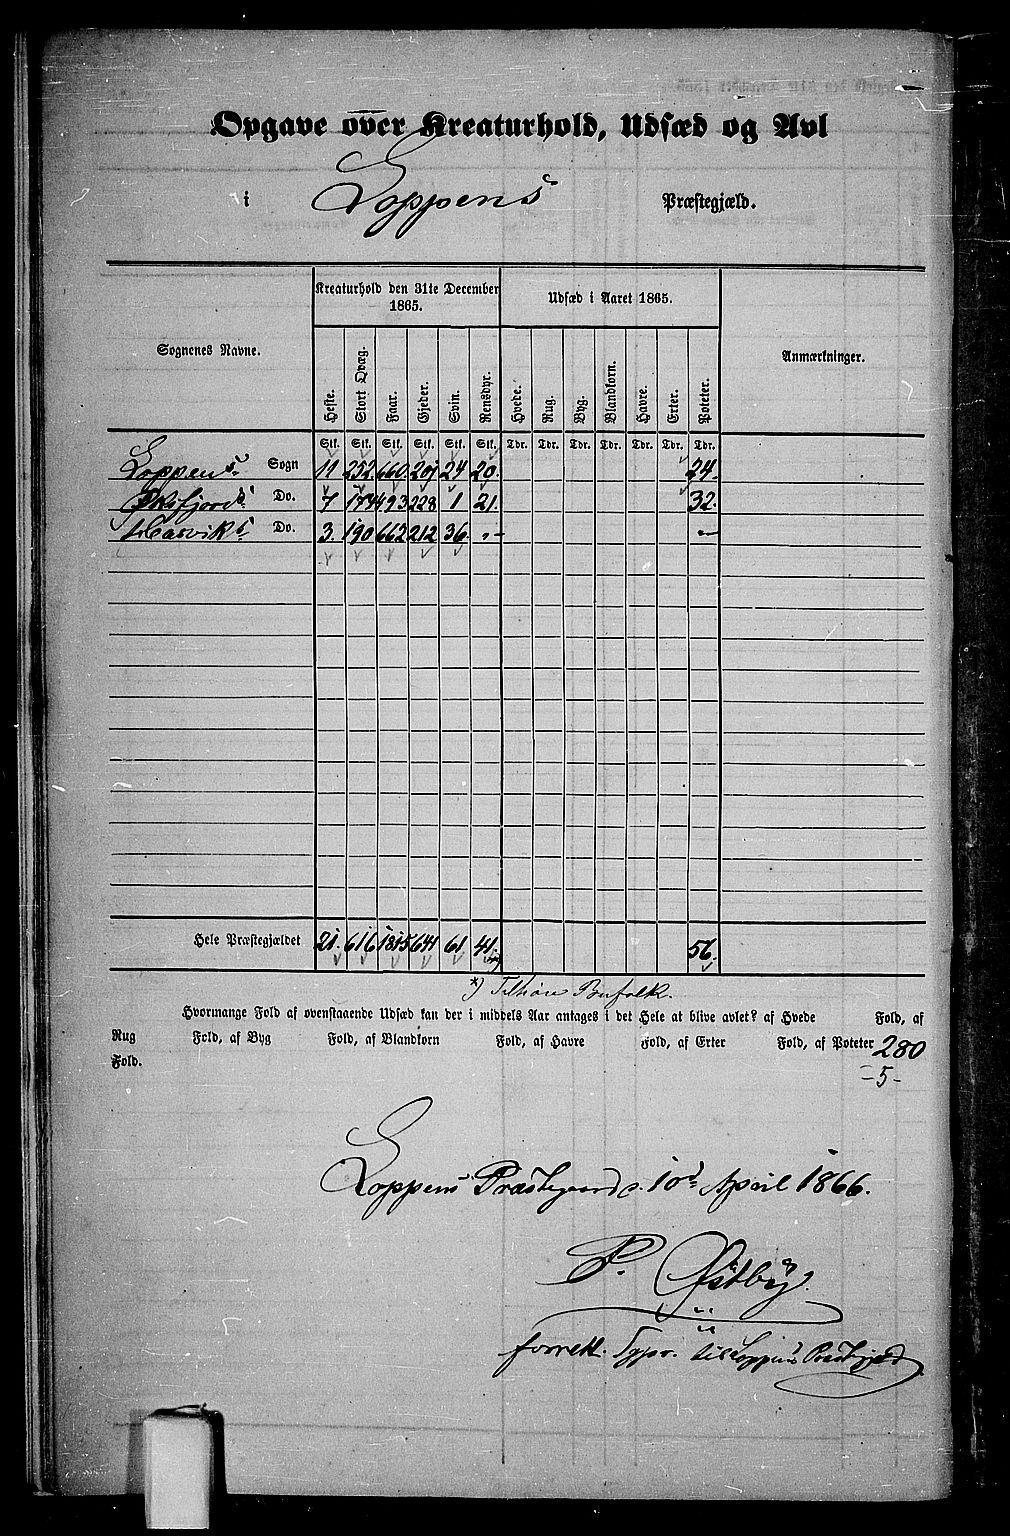 Opgave over Kreaturhold, Udsæd og Avl
i Loppens Præstegjæld.
Sognenes Navne.
Kreaturhold den 31te December 1865.
Udsæd i Aaret 1865.
Anmærkninger.
Heste. Stort Qvæg. Faar. Gjeder. Svin. Rensdyr. Hvede. Rug. Byg. Blandkorn. Havre. Erter. Poteter.
Stk. Stk. Stk. Stk. Stk. Stk. Tdr. Tdr. Tdr. Tdr. Tdr. Tdr. Tdr.
Loppens Sogn 11 252. 660 201 24 20. 24.
Øksfjords Do. 7 174 493 228 1 21. 32.
Hasviks Do. 3. 190 662 212 36. „ – „ –
Hele Præstegjældet 21. 616 1815 641 61 41. 56.
*) Tilhöre Bufolk.
Hvormange Fold af ovenstaaende Udsæd kan der i middels Aar antages i det Hele at blive avlet? af Hvede Fold, af
Rug Fold, af Byg Fold, af Blandkorn Fold, af Havre Fold, af Erter Fold, af Poteter 280
Fold. – 5 –
Loppens Præstegaard d. 10d April 1866.
P. Østby.
til Loppens Præstegjæld